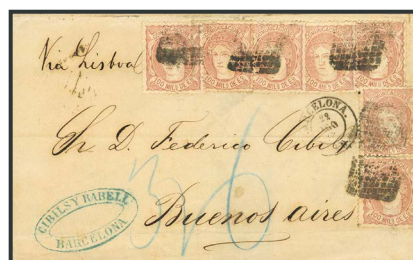 Via Lisboa
BARCELONA.
22
Sr. D. Federico Cibils
36
Buenos aires
CIBILS Y BABELL
BARCELONA